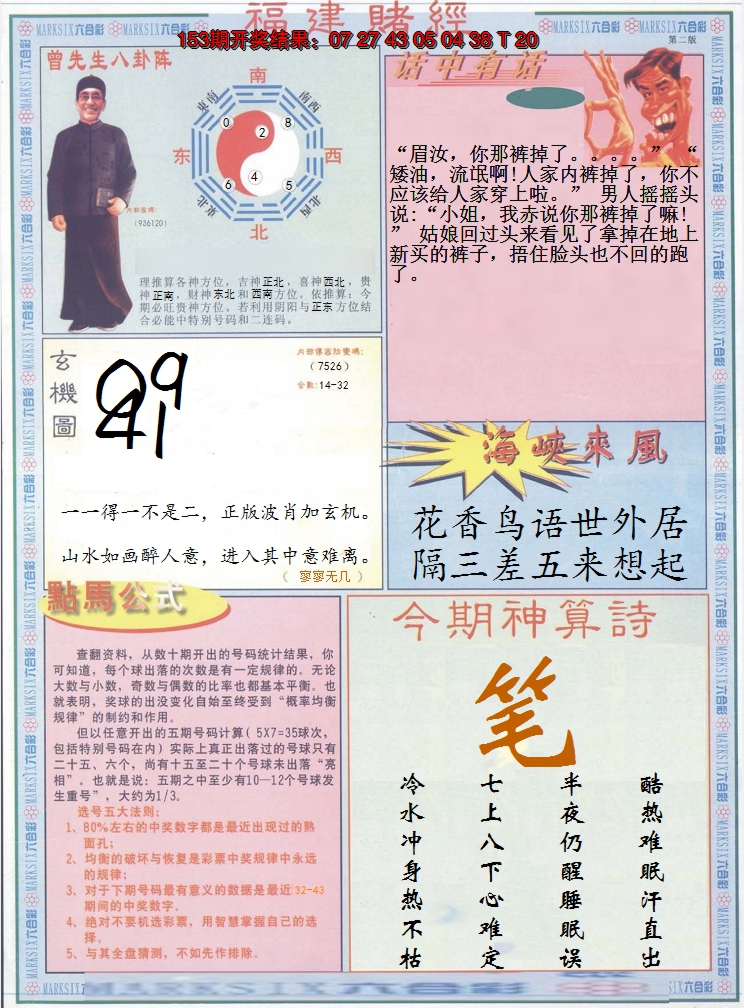 福建賭經
MARKSIX六合彩
153期开奖结果: 07 27 43 05 04 38 T 20
第二版
曾先生八卦阵
南
东南
西南
0
8
2
东
西
6
4
5
东北
西北
北
内部密碼:
(936120)
理推算各神方位，吉神正北，喜神西北，贵
神正南，财神东北和西南方位。依推算：今
期必旺贵神方位。若利用阴阳与正东方位结
合必能中特别号码和二连码。
话中有话
“眉汝，你那裤掉了。。。。” “
矮油，流氓啊!人家内裤掉了，你不
应该给人家穿上啦。” 男人摇摇头
说:“小姐，我赤说你那裤掉了嘛!
” 姑娘回过头来看见了拿掉在地上
新买的裤子，捂住脸头也不回的跑
了。
玄機圖
内部傳密防變碼:
(7526)
合数:14-32
一一得一不是二，正版波肖加玄机。
山水如画醉人意，进入其中意难离。
（ 寥寥无几 ）
海峽來風
花香鸟语世外居
隔三差五来想起
點馬公式
查翻资料，从数十期开出的号码统计结果，你
可知道，每个球出落的次数是有一定规律的。无论
大数与小数，奇数与偶数的比率也都基本平衡。也
就表明，奖球的出没变化自始至终受到“概率均衡
规律”的制约和作用。
但以任意开出的五期号码计算( 5X7=35球次，
包括特别号码在内) 实际上真正出落过的号球只有
二十五、六个，尚有十五至二十个号球未出落“亮
相”。也就是说：五期之中至少有10—12个号球发
生重号”，大约为1/3。
选号五大法则:
1、80%左右的中奖数字都是最近出现过的熟
面孔;
2、均衡的破坏与恢复是彩票中奖规律中永远
的规律;
3、对于下期号码最有意义的数据是最近32-43
期间的中奖数字。
4、绝对不要机选彩票，用智慧掌握自己的选
择。
5、与其全盘猜测，不如先作排除。
今期神算詩
笔
酷热难眠汗直出
半夜仍醒睡眠误
七上八下心难定
冷水冲身热不枯